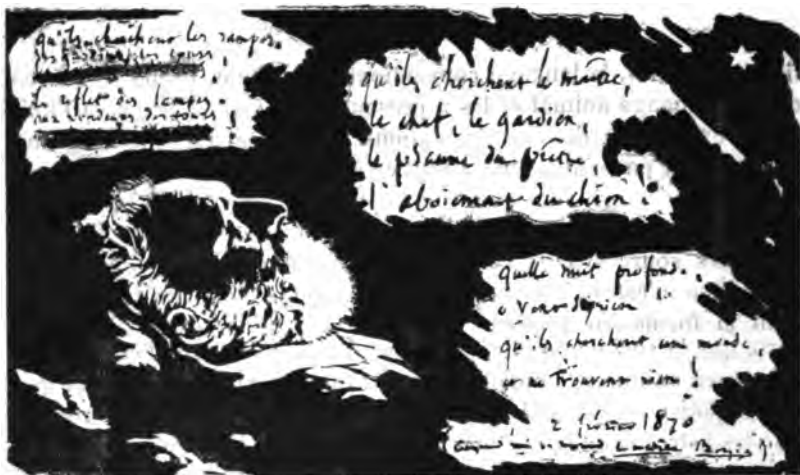 qu'ils cherchent les rampes,
les
le reflet des lampes
aux rondeurs des tours !
qu'ils cherchent le maître,
le chat, le gardien,
le psaume du prêtre,
l'aboiement du chien !
quelle nuit profonde !
o
qu'ils cherchent un monde,
et ne trouvent rien !
2 février 1870